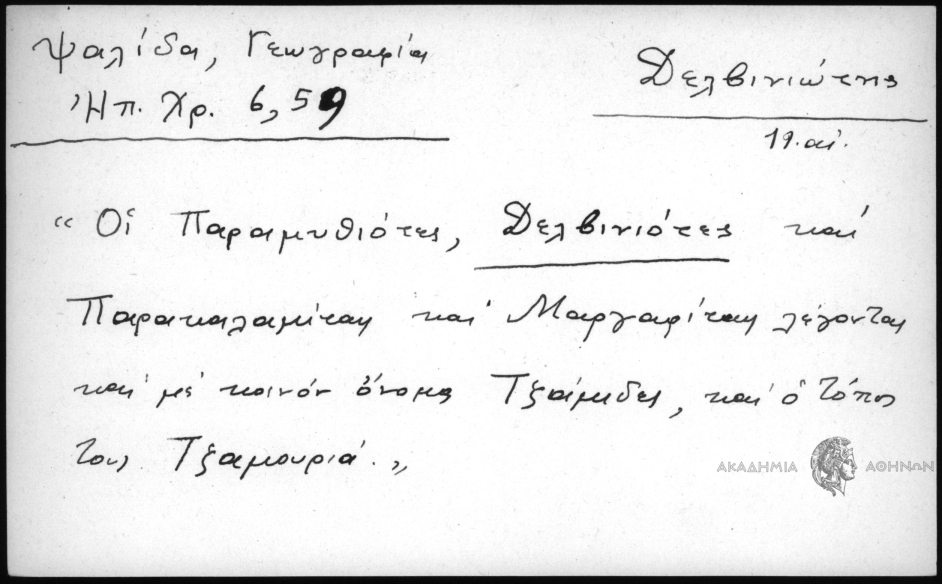 Ψαλίδα, Γεωγραφία
Ἠπ. Χρ. 6, 59
Δελβινιώτης
19. αἰ.
“ Οἱ Παραμυθιότες, Δελβινιότες καί
Παρακαλαμίται καί Μαργαρίται λέγονται
καί μέ κοινόν ὄνομα Τζάμιδες, καί ὁ τόπος
τους Τζαμουριά. „
ΑΚΑΔΗΜΙΑ ΑΘΗΝΩΝ